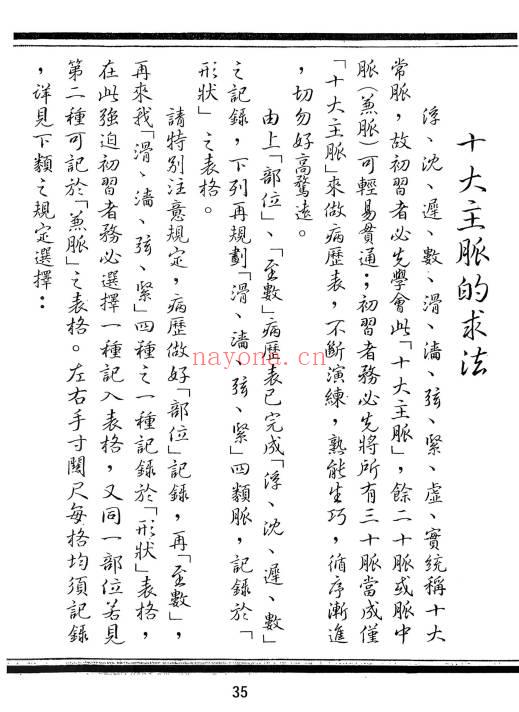 十大主脈的求法
浮、沈、遲、數、滑、濇、弦、緊、虛、實統稱十大
常脈，故初習者必先學會此「十大主脈」，餘二十脈或脈中
脈(兼脈)可輕易貫通；初習者務必先將所有三十脈當成僅
「十大主脈」來做病歷表，不斷演練，熟能生巧，循序漸進
，切勿好高騖遠。
由上「部位」、「至數」病歷表已完成「浮、沈、遲、數」
之記錄，下列再規劃「滑、濇、弦、緊」四類脈，記錄於「
形狀」之表格。
請特別注意規定，病歷做好「部位」記錄，再「至數」，
再來找「滑、濇、弦、緊」四種之一種記錄於「形狀」表格，
在此強迫初習者務必選擇一種記入表格，又同一部位若見
第二種可記於「兼脈」之表格。左右手寸關尺每格均須記錄
，详見下類之規定選擇：
nayona.cn
35